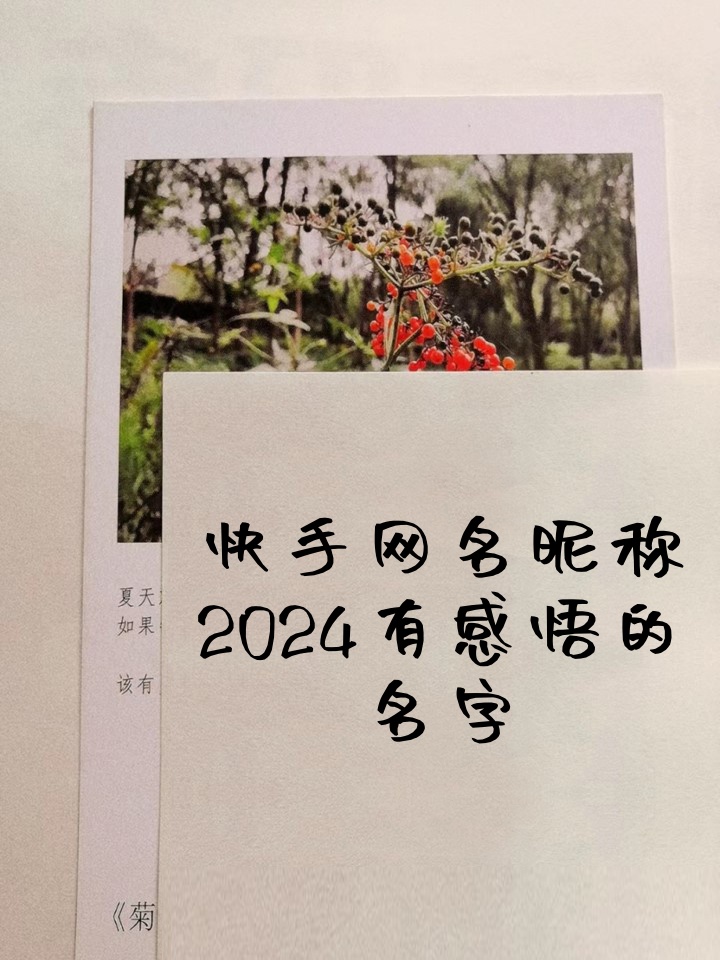 夏天
如果
该有
《菊
快手网名昵称
2024有感悟的
名字